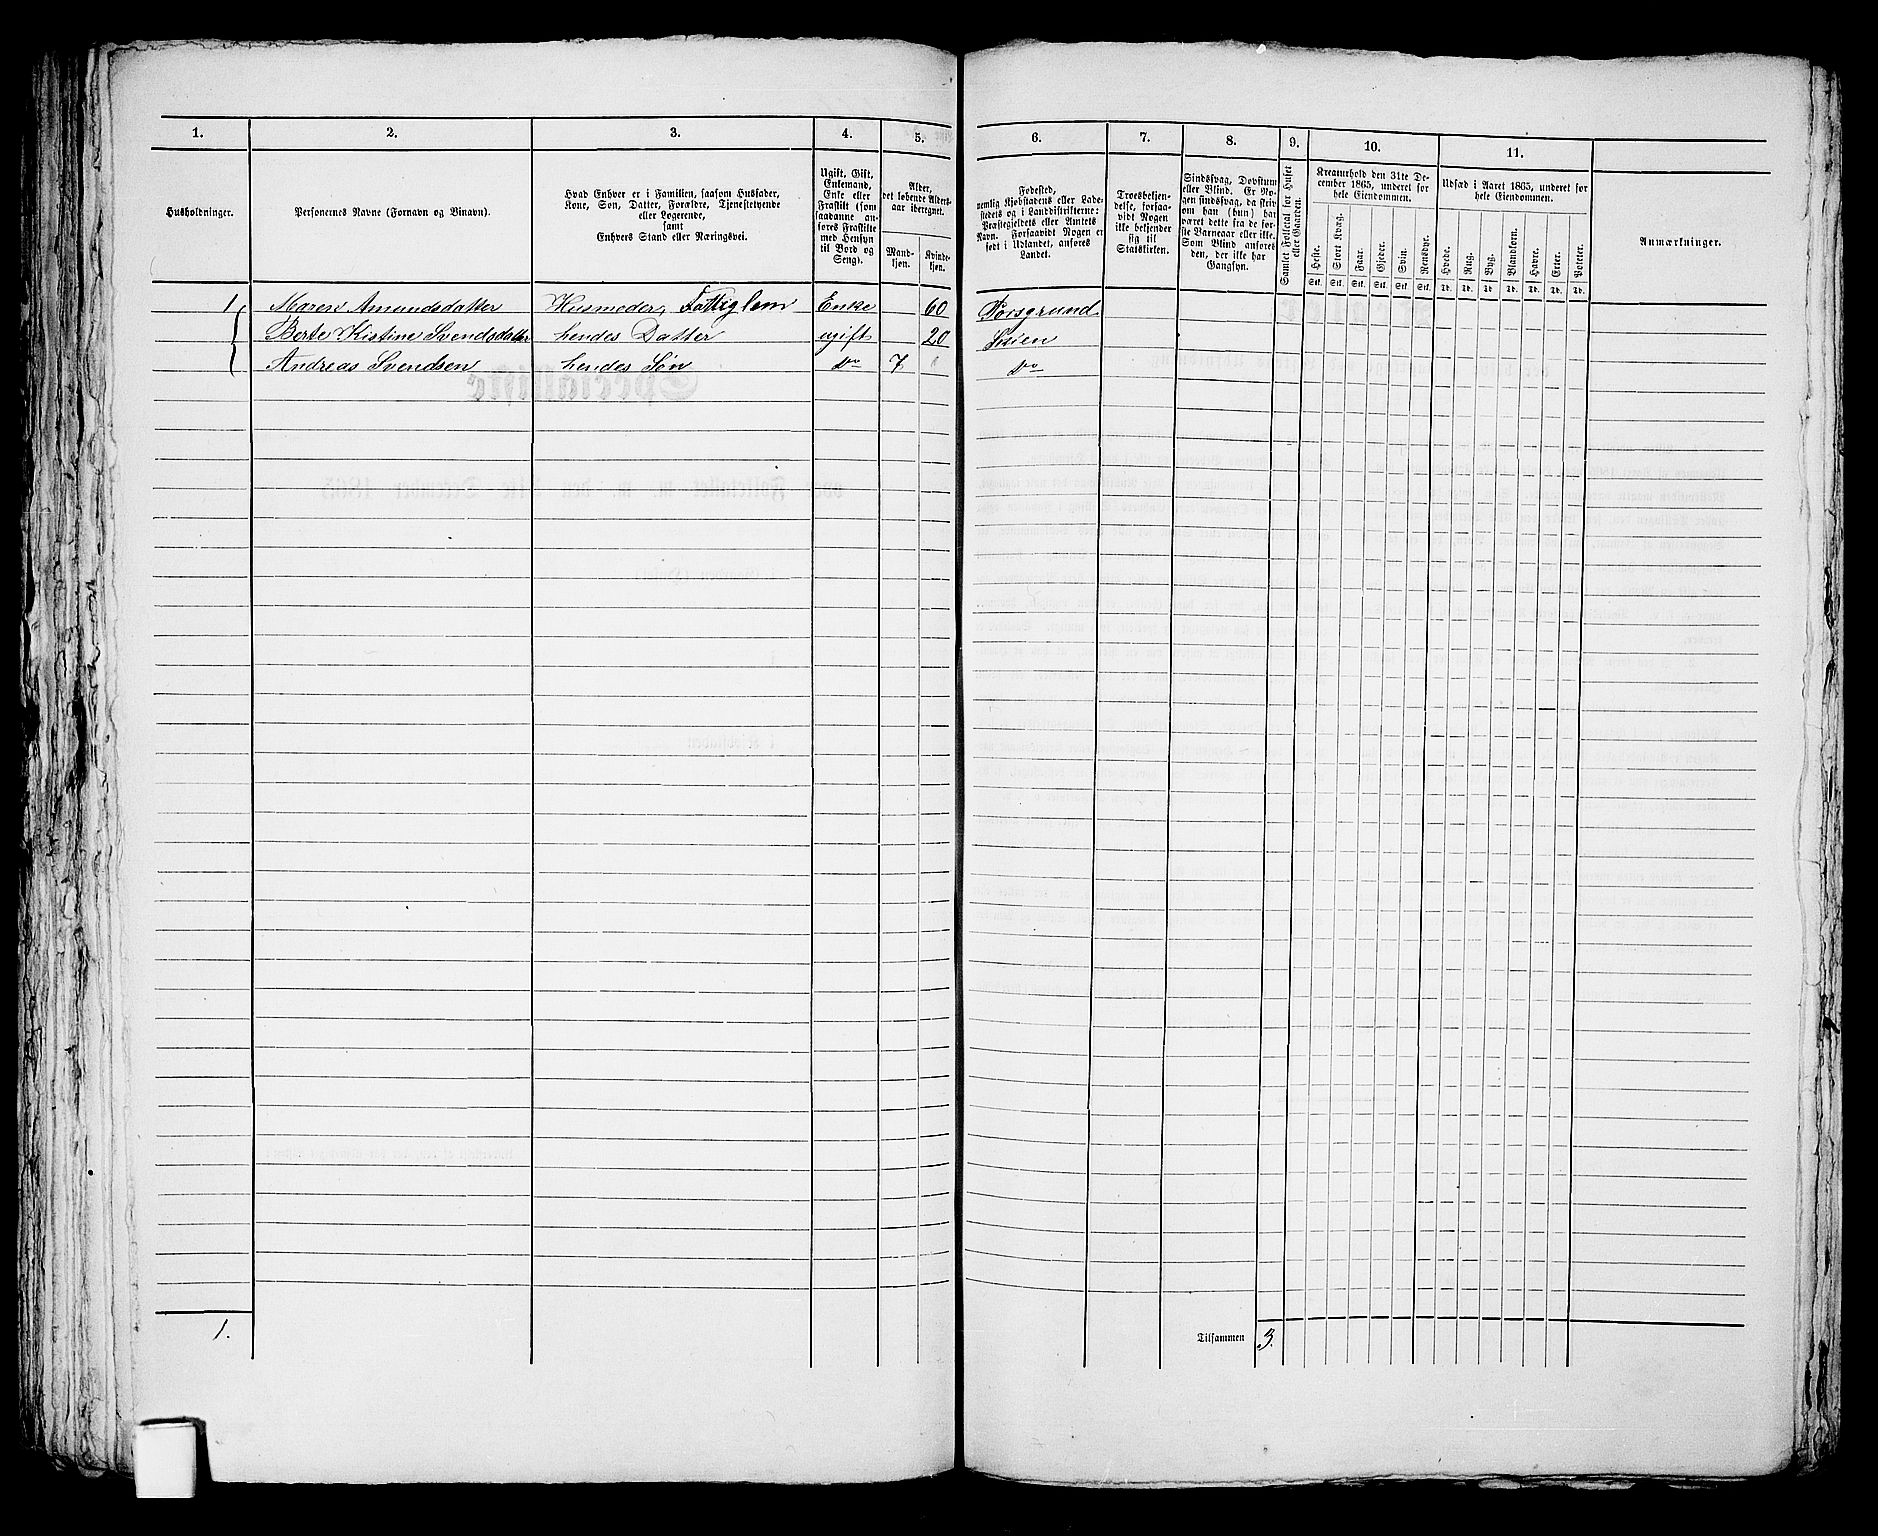 1. 2. 3. 4. 5. 6. 7. 8. 9. 10. 11.
Husholdninger.
Personernes Navne (Fornavn og Vinavn).
Hvad Enhver er i Familien, saasom Husfader,
Kone, Søn, Datter, Forældre, Tjenestetyende
eller Logerende,
samt
Enhvers Stand eller Næringsvei.
Ugift, Gift,
Enkemand,
Enke eller
Fraskilt (som
saadanne an-
føres Fraskilte
med Hensyn
til Bord og
Seng).
Alder,
det løbende Alders-
aar iberegnet.
Mand-
kjøn.
Kvinde-
kjøn.
Fødested,
nemlig Kjøbstadens eller Lade-
stedets og i Landdistrikterne:
Præstegjeldets eller Amtets
Navn. Forsaavidt Nogen er
født i Udlandet, anføres
Landet.
Troesbekjen-
delse, forsaa-
vidt Nogen
ikke bekjender
sig til
Statskirken.
Sindssvag, Døvstum
eller Blind. Er No-
gen sindssvag, da skri-
ves om han (hun) har
været dette fra de før-
ste Barneaar eller ikke.
Som Blind anføres
den, der ikke har
Gangsyn.
Samlet Folketal for Huset
eller Gaarden.
Kreaturhold den 31te De-
cember 1865, underet for
hele Eiendommen.
Heste. Stort Kvæg. Faar. Gjeder. Svin. Rensdyr.
Stk. Stk. Stk. Stk. Stk. Stk.
Udsæd i Aaret 1865, underet for
hele Eiendommen.
Hvede. Rug. Byg. Blandkorn. Havre. Erter. Poteter.
Td. Td. Td. Td. Td. Td. Td.
Anmærkninger.
1 Maren Amundsdatter Husmoder, Fattiglem Enke 60 Porsgrund
Berte Kistine Svendsdatter hendes Datter ugift 20 Skien
Andreas Svendsen hendes Søn do 7 do
1. Tilsammen 3.